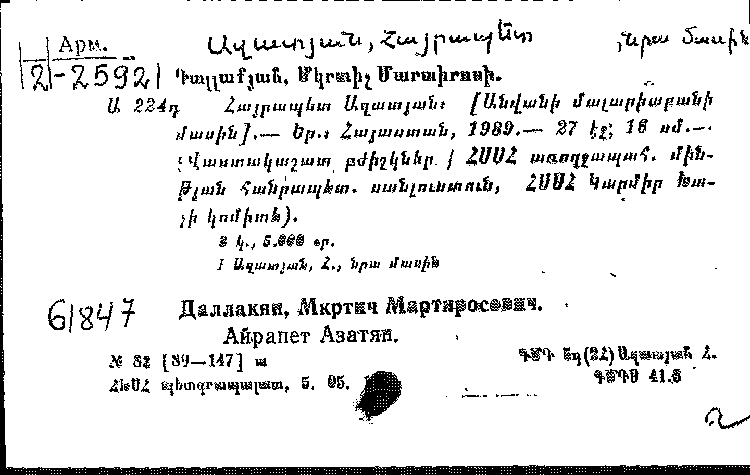 Ազատյան, Հայրապետ նրա մասին
Арм.
2-2592
Դալլաքյան, Մկրտիչ Մարտիրոսի.
Ա 224դ Հայրապետ Ազատյան: [Անվանի մալարիաբանի
մասին].— Եր.: Հայաստան, 1989.— 27 էջ; 16 սմ.—
(Վաստակաշատ բժիշկներ / ՀՍՍՀ առողջապահ. մին-
Հանրապետ. սանլուստուն, ՀՍՍՀ Կարմիր Խա-
չի կոմիտե).
3 կ., 5.000 օր.
I Ազատյան, Հ., նրա մասին
61847
Даллакян, Мкртич Мартиросович.
Айрапет Азатян.
№ 82 [89—147] ա
ՀԽՍՀ պետգրապալատ, 5. 05.
ԳՄԴ 5դ(2Հ)Ազատյան Հ.
ԳՄԴՑ 41.6